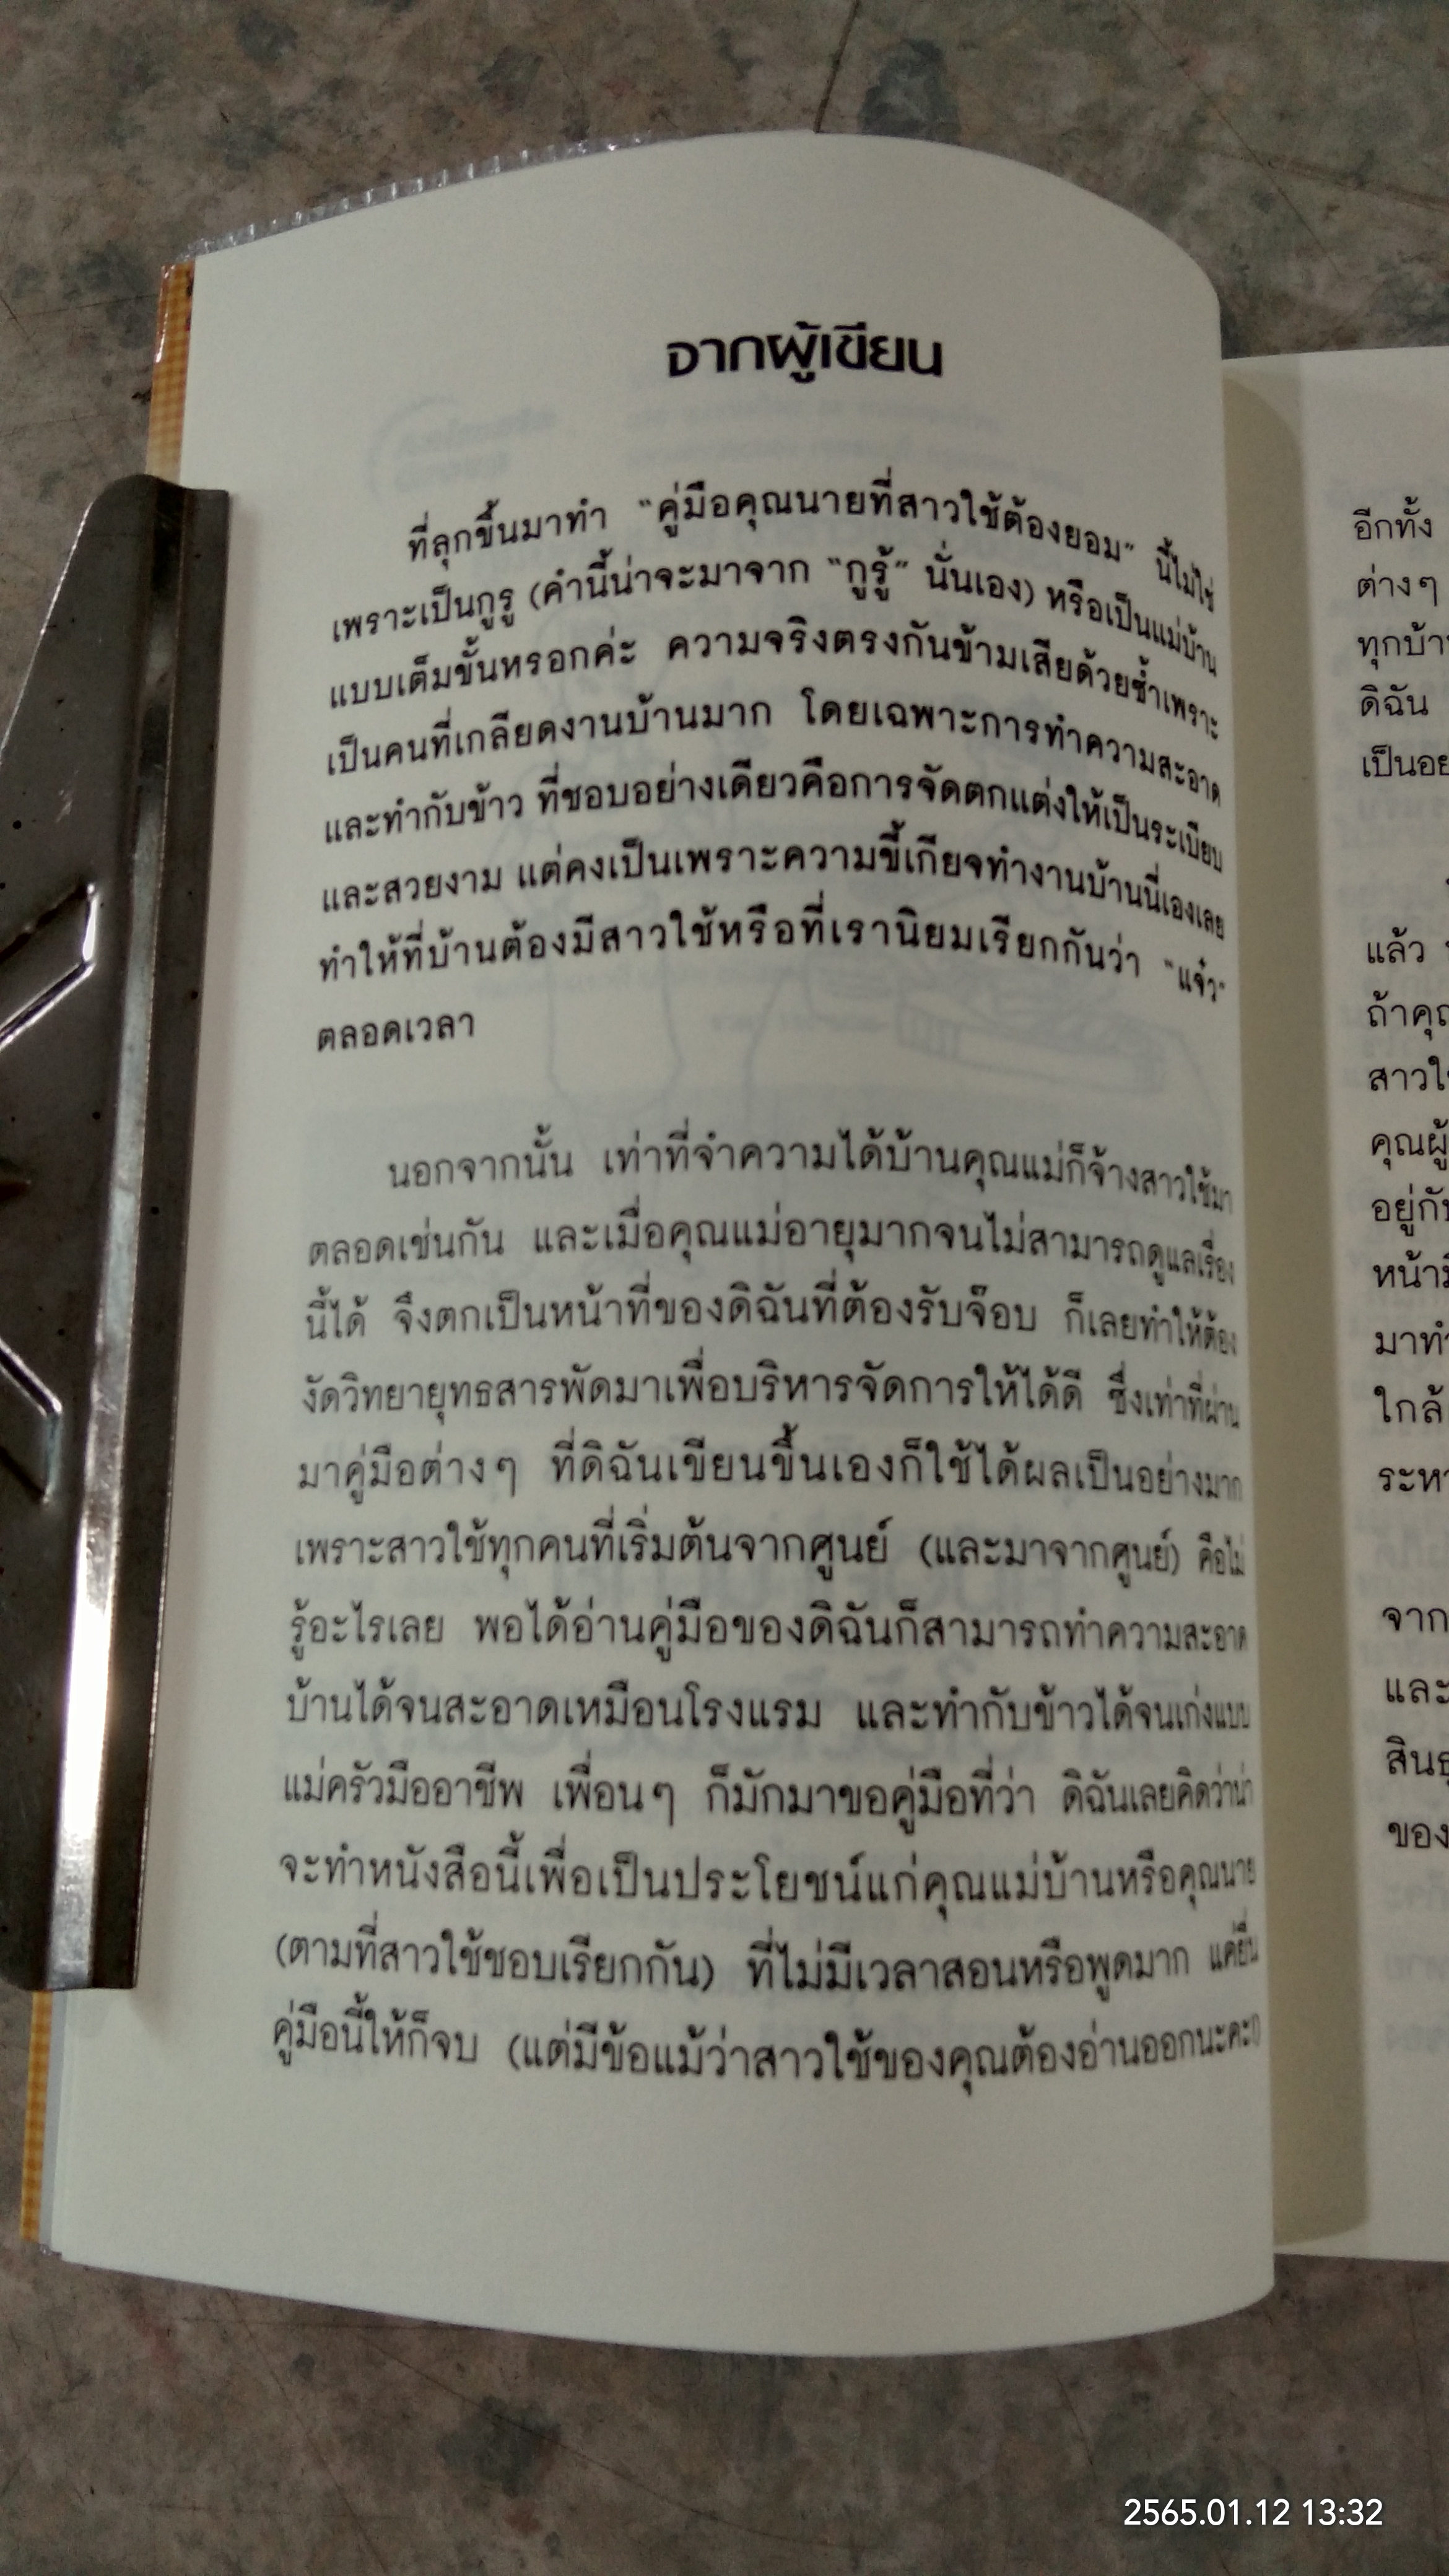 จากผู้เขียน
ที่ลุกขึ้นมาทำ "คู่มือคุณนายที่สาวใช้ต้องยอม" นี้ไม่ใช่
เพราะเป็นกูรู (คำนี้น่าจะมาจาก "กูรู้" นั่นเอง) หรือเป็นแม่บ้าน
แบบเต็มขั้นหรอกค่ะ ความจริงตรงกันข้ามเสียด้วยซ้ำเพราะ
เป็นคนที่เกลียดงานบ้านมาก โดยเฉพาะการทำความสะอาด
และทำกับข้าว ที่ชอบอย่างเดียวคือการจัดตกแต่งให้เป็นระเบียบ
และสวยงาม แต่คงเป็นเพราะความขี้เกียจทำงานบ้านนี่เองเลย
ทำให้ที่บ้านต้องมีสาวใช้หรือที่เรานิยมเรียกกันว่า "แจ๋ว"
ตลอดเวลา
นอกจากนั้น เท่าที่จำความได้บ้านคุณแม่ก็จ้างสาวใช้มา
ตลอดเช่นกัน และเมื่อคุณแม่อายุมากจนไม่สามารถดูแลเรื่อง
นี้ได้ จึงตกเป็นหน้าที่ของดิฉันที่ต้องรับจ๊อบ ก็เลยทำให้ต้อง
งัดวิทยายุทธสารพัดมาเพื่อบริหารจัดการให้ได้ดี ซึ่งเท่าที่ผ่าน
มาคู่มือต่างๆ ที่ดิฉันเขียนขึ้นเองก็ใช้ได้ผลเป็นอย่างมาก
เพราะสาวใช้ทุกคนที่เริ่มต้นจากศูนย์ (และมาจากศูนย์) คือไม่
รู้อะไรเลย พอได้อ่านคู่มือของดิฉันก็สามารถทำความสะอาด
บ้านได้จนสะอาดเหมือนโรงแรม และทำกับข้าวได้จนเก่งแบบ
แม่ครัวมืออาชีพ เพื่อนๆ ก็มักมาขอคู่มือที่ว่า ดิฉันเลยคิดว่าน่า
จะทำหนังสือนี้เพื่อเป็นประโยชน์แก่คุณแม่บ้านหรือคุณนาย
(ตามที่สาวใช้ชอบเรียกกัน) ที่ไม่มีเวลาสอนหรือพูดมาก แค่ยื่น
คู่มือนี้ให้ก็จบ (แต่มีข้อแม้ว่าสาวใช้ของคุณต้องอ่านออกนะคะ!)
อีกทั้ง
ต่างๆ
ดิฉัน
แล้ว
ใกล้
จาก
และ
ของ
2565.01.12 13:32